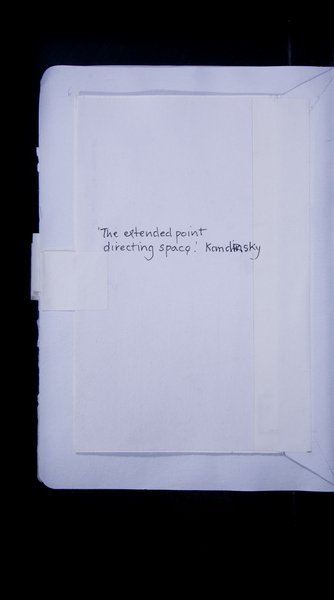 'The extended point
directing space.' Kandinsky